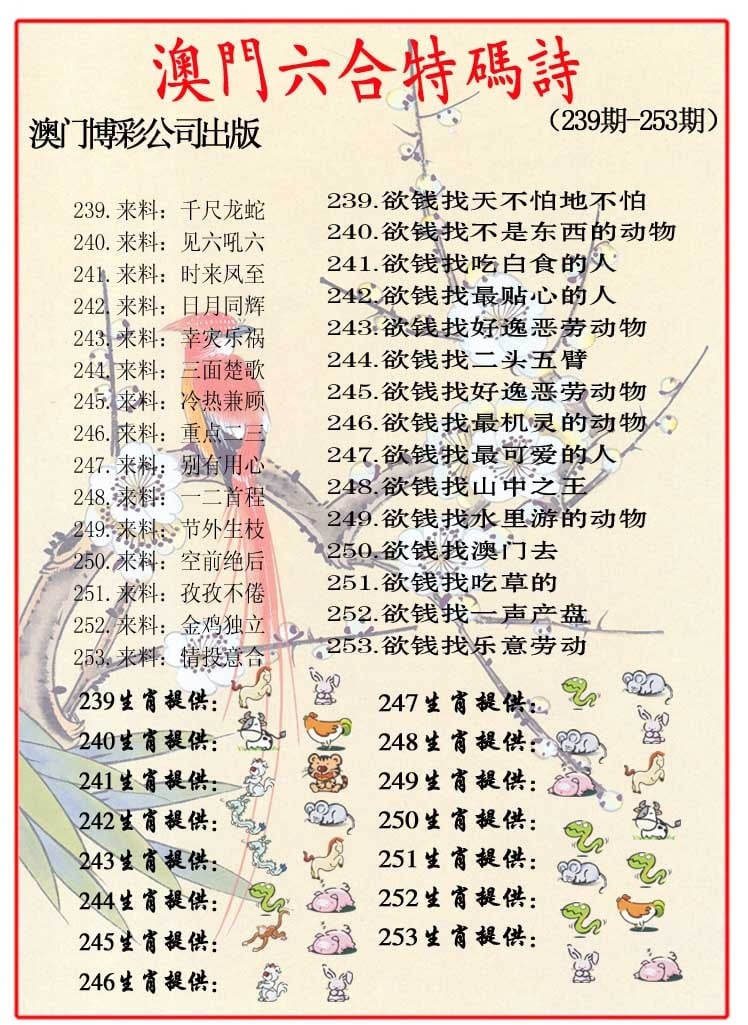 澳門六合特碼詩
澳门博彩公司出版
（239期-253期）
239.来料：千尺龙蛇
240.来料：见六吼六
241.来料：时来凤至
242.来料：日月同辉
243.来料：幸灾乐祸
244.来料：三面楚歌
245.来料：冷热兼顾
246.来料：重点二三
247.来料：别有用心
248.来料：一二首程
249.来料：节外生枝
250.来料：空前绝后
251.来料：孜孜不倦
252.来料：金鸡独立
253.来料：情投意合
239.欲钱找天不怕地不怕
240.欲钱找不是东西的动物
241.欲钱找吃白食的人
242.欲钱找最贴心的人
243.欲钱找好逸恶劳动物
244.欲钱找二头五臂
245.欲钱找好逸恶劳动物
246.欲钱找最机灵的动物
247.欲钱找最可爱的人
248.欲钱找山中之王
249.欲钱找水里游的动物
250.欲钱找澳门去
251.欲钱找吃草的
252.欲钱找一声产盘
253.欲钱找乐意劳动
239生肖提供：
240生肖提供：
241生肖提供：
242生肖提供：
243生肖提供：
244生肖提供：
245生肖提供：
246生肖提供：
247生肖提供：
248生肖提供：
249生肖提供：
250生肖提供：
251生肖提供：
252生肖提供：
253生肖提供：